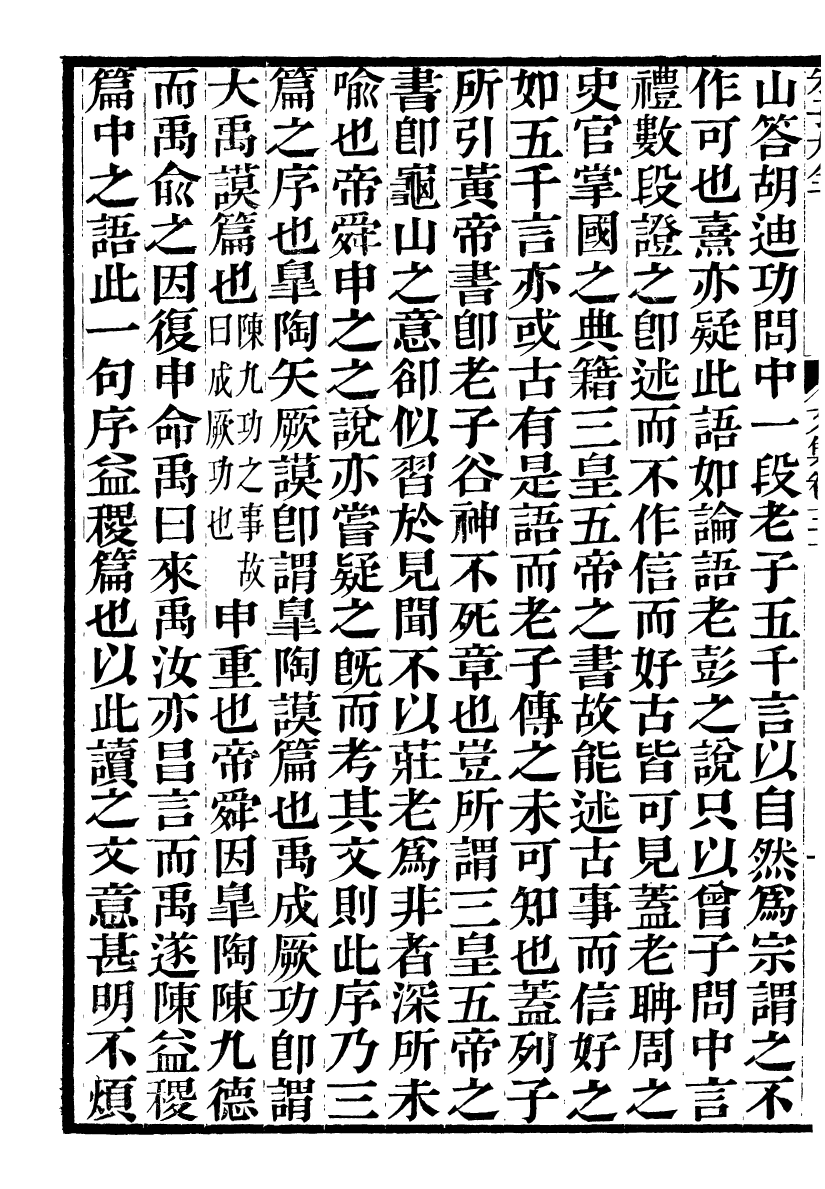 山答胡迪功問中一段老子五千言以自然爲宗謂之不
作可也熹亦疑此語如論語老彭之說只以曾子問中言
禮數段證之卽述而不作信而好古皆可見蓋老聃周之
史官掌國之典籍三皇五帝之書故能述古事而信好之
如五千言亦或古有是語而老子傳之未可知也蓋列子
所引黃帝書卽老子谷神不死章也豈所謂三皇五帝之
書卽龜山之意卻似習於見聞不以莊老爲非者深所未
喩也帝舜申之之說亦嘗疑之旣而考其文則此序乃三
篇之序也臯陶矢厥謨卽謂臯陶謨篇也禹成厥功卽謂
大禹謨篇也陳九功之事故曰成厥功也申重也帝舜因臯陶陳九德
而禹兪之因復申命禹曰來禹汝亦昌言而禹遂陳益稷
篇中之語此一句序益稷篇也以此讀之文意甚明不煩